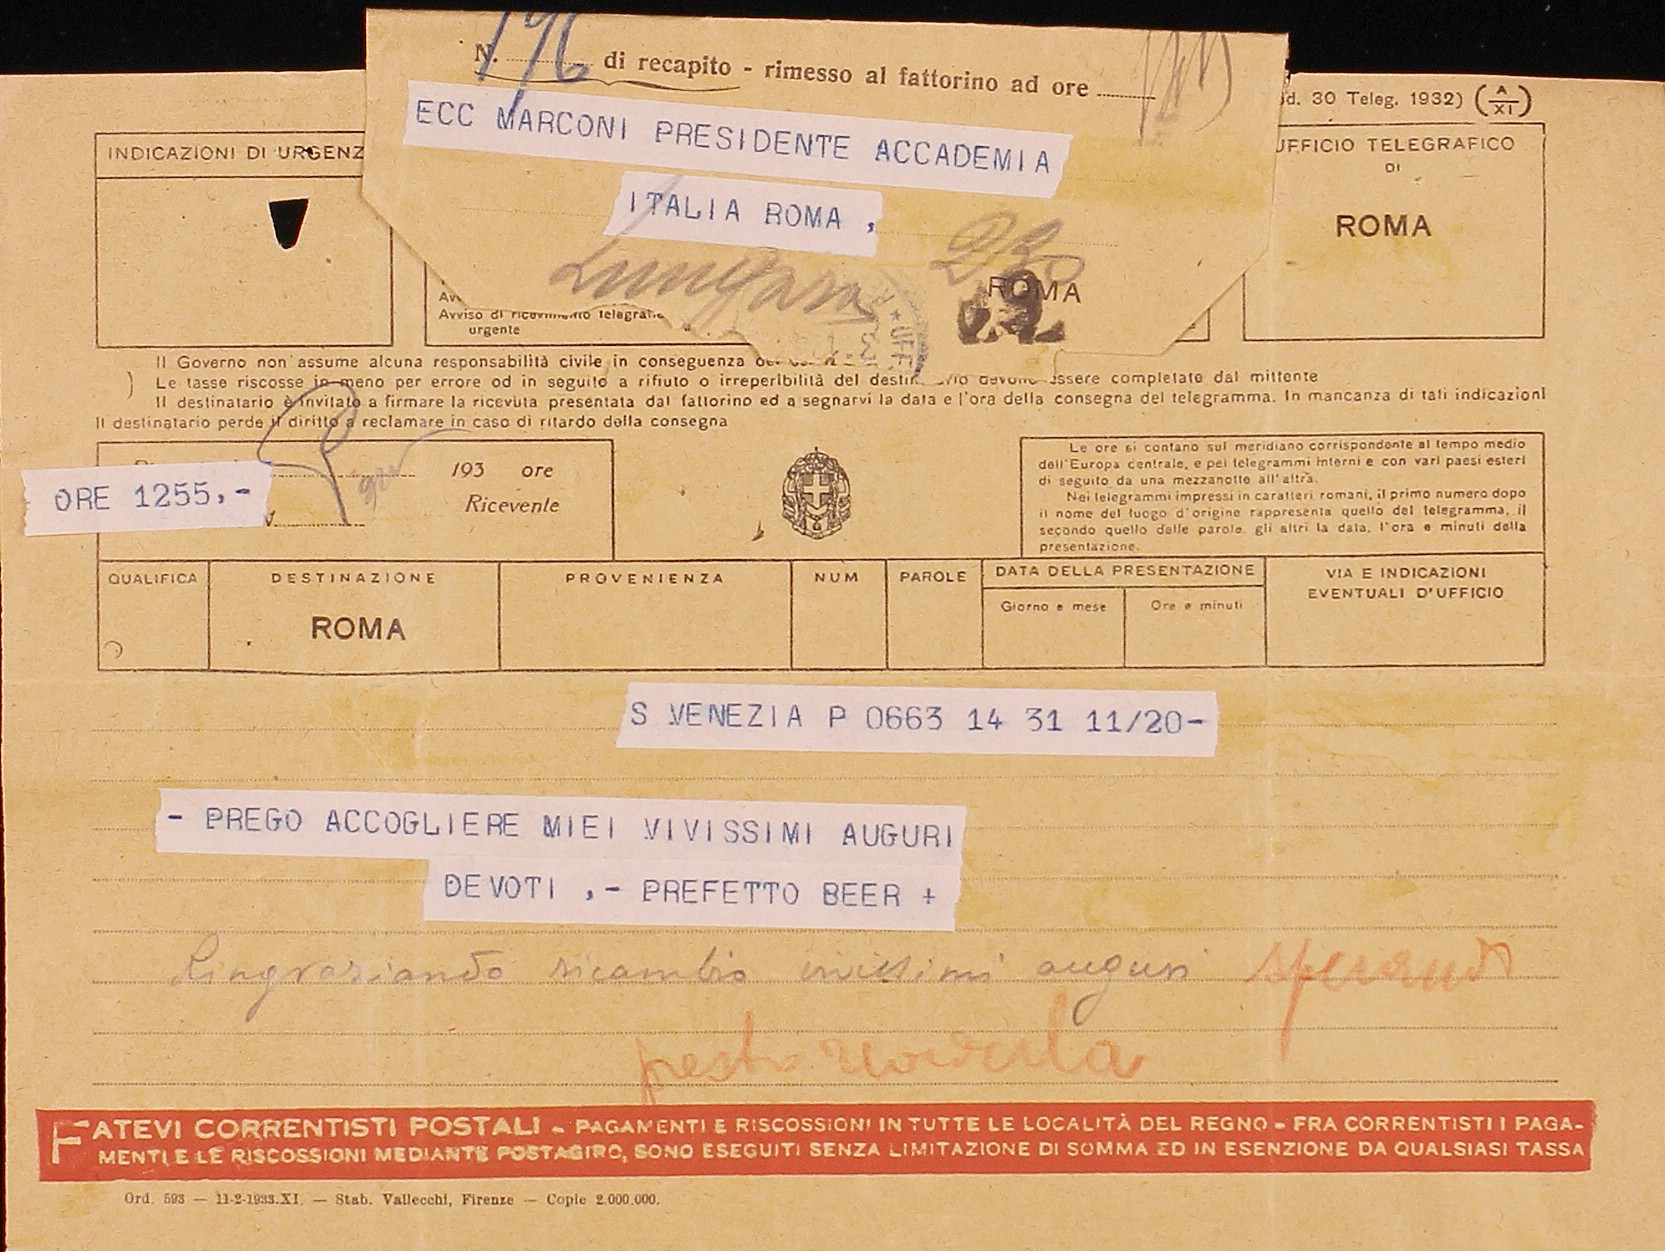 N. 196 di recapito - rimesso al fattorino ad ore
ECC MARCONI PRESIDENTE ACCADEMIA
ITALIA ROMA ,
Lungara 230
ROMA
UFF
d. 30 Teleg. 1932) (A/XI)
INDICAZIONI DI URGENZ
UFFICIO TELEGRAFICO
DI
ROMA
Avviso di ricevimento telegraf
urgente
Il Governo non assume alcuna responsabilità civile in conseguenza
Le tasse riscosse in meno per errore od in seguito a rifiuto o irreperibilità del destin rio devono essere completate dal mittente
Il destinatario è invitato a firmare la ricevuta presentata dal fattorino ed a segnarvi la data e l'ora della consegna del telegramma. In mancanza di tali indicazioni
il destinatario perde il diritto a reclamare in caso di ritardo della consegna
193 ore
ORE 1255,-
Ricevente
Le ore si contano sul meridiano corrispondente al tempo medio
dell'Europa centrale, e pei telegrammi interni e con vari paesi esteri
di seguito da una mezzanotte all'altra.
Nei telegrammi impressi in caratteri romani, il primo numero dopo
il nome del luogo d'origine rappresenta quello del telegramma, il
secondo quello delle parole, gli altri la data, l'ora e minuti della
presentazione.
QUALIFICA DESTINAZIONE PROVENIENZA NUM PAROLE DATA DELLA PRESENTAZIONE VIA E INDICAZIONI
EVENTUALI D'UFFICIO
Giorno e mese Ore e minuti
ROMA
S VENEZIA P 0663 14 31 11/20-
- PREGO ACCOGLIERE MIEI VIVISSIMI AUGURI
DEVOTI ,- PREFETTO BEER +
Ringraziando ricambio vivissimi auguri sperando
presto rivederla
FATEVI CORRENTISTI POSTALI - PAGAMENTI E RISCOSSIONI IN TUTTE LE LOCALITÀ DEL REGNO - FRA CORRENTISTI I PAGA-
MENTI E LE RISCOSSIONI MEDIANTE POSTAGIRO, SONO ESEGUITI SENZA LIMITAZIONE DI SOMMA ED IN ESENZIONE DA QUALSIASI TASSA
Ord. 593 — 11-2-1933.XI. — Stab. Vallecchi, Firenze — Copie 2.000.000.